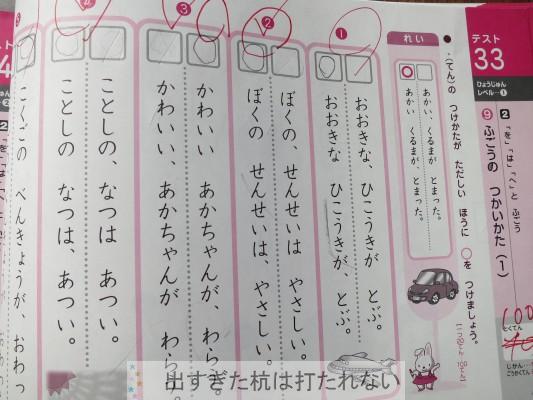 テスト
33
ひょうじゅん
レベル
2 「を」「は」「へ」と ふごう
9 ふごうの つかいかた(1)
● 、(てん)の つけかたが ただしい ほうに ○を つけましょう。
れい
あかい、くるまが とまった。
あかい くるまが、とまった。
1
おおきな、ひこうきが とぶ。
おおきな ひこうきが、とぶ。
2
ぼくの、せんせいは やさしい。
ぼくの せんせいは、やさしい。
3
かわいい あかちゃんが、わら
かわいい、あかちゃんが わら
ことしの、なつは あつい。
ことしの なつは、あつい。
こくごの べんきょうが、おわっ
とくてん
100
じかん
出すぎた杭は打たれない